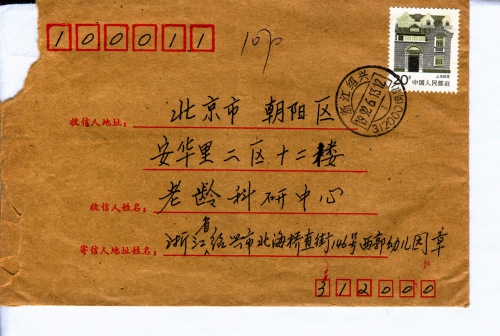 100011
上海民居
20分 中国人民邮政
浙江绍兴
312000
收信人地址： 北京市 朝阳区
安华里二区十二楼
收信人姓名： 老龄科研中心
寄信人地址姓名： 浙江省绍兴市北海桥直街146号西郭幼儿园章
312000